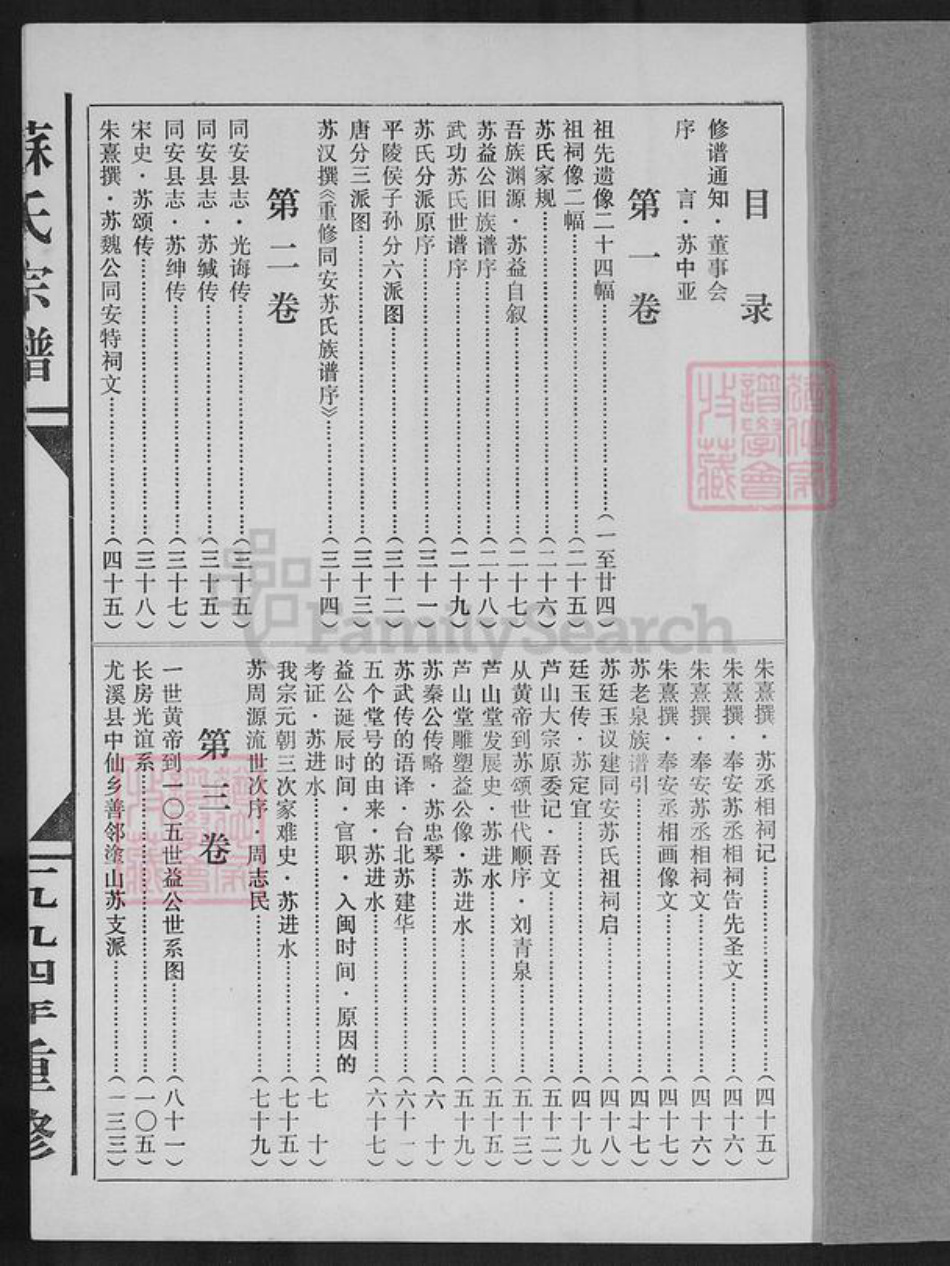 目录
修谱通知·董事会
序言·苏中亚
第一卷
祖先遗像二十四幅……（一至廿四）
祖祠像二幅……（二十五）
苏氏家规……（二十六）
吾族渊源·苏益自叙……（二十七）
苏益公旧族谱序……（二十八）
武功苏氏世谱序……（二十九）
苏氏分派原序……（三十一）
平陵侯子孙分六派图……（三十二）
唐分三派图……（三十三）
苏汉撰《重修同安苏氏族谱序》……（三十四）
第二卷
同安县志·光诲传……（三十五）
同安县志·苏缄传……（三十五）
同安县志·苏绅传……（三十七）
宋史·苏颂传……（三十八）
朱熹撰·苏魏公同安特祠文……（四十五）
朱熹撰·苏丞相祠记……（四十五）
朱熹撰·奉安苏丞相祠告先圣文……（四十六）
朱熹撰·奉安苏丞相祠文……（四十六）
朱熹撰·奉安丞相画像文……（四十七）
苏老泉族谱引……（四十七）
苏廷玉议建同安苏氏祖祠启……（四十八）
廷玉传·苏定宜……（四十九）
芦山大宗原委记·吾文……（五十二）
从黄帝到苏颂世代顺序·刘青泉……（五十三）
芦山堂发展史·苏进水……（五十五）
芦山堂雕塑益公像·苏进水……（五十九）
苏秦公传略·苏忠琴……（六十）
苏武传的语译·台北苏建华……（六十一）
五个堂号的由来·苏进水……（六十七）
益公诞辰时间·官职·入闽时间·原因的
考证·苏进水……（七十）
我宗元朝三次家难史·苏进水……（七十五）
苏周源流世次序·周志民……（七十九）
第三卷
一世黄帝到一〇五世益公世系图……（八十一）
长房光谊系……（一〇五）
尤溪县中仙乡善邻塗山苏支派……（一三三）
蘇氏宗譜
一九九四年重修
FamilySearch